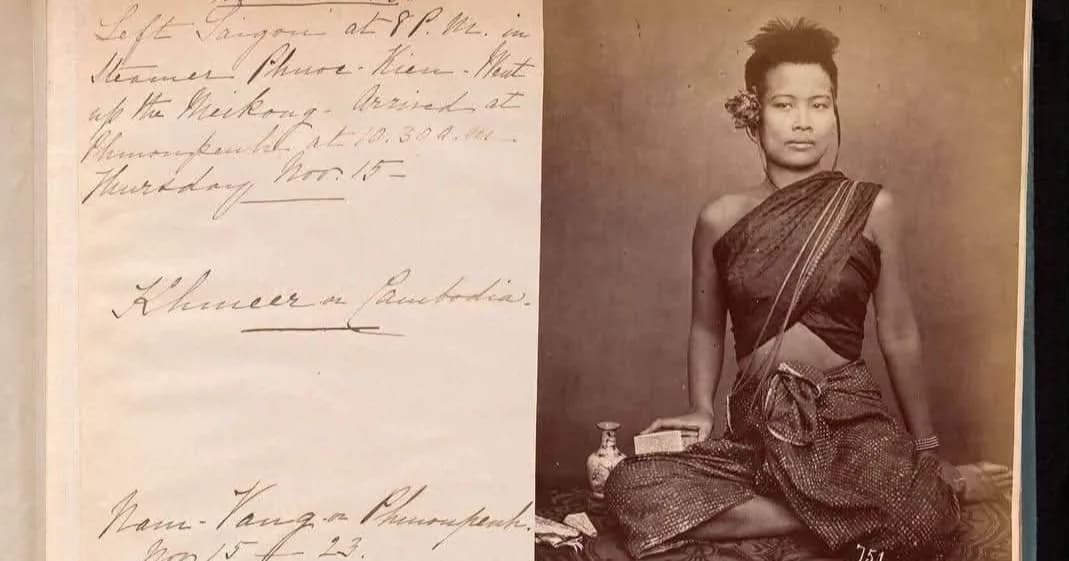 Left Saigon at 8 P.M. in
Steamer Phuoc-Kien - Went
up the Meikong - Arrived at
Phnonpenh at 10.30 a.m -
Thursday Nov. 15 -
Khmeer or Cambodia.
Nam-Vang or Phnonpenh.
Nov 15 - 23.
751